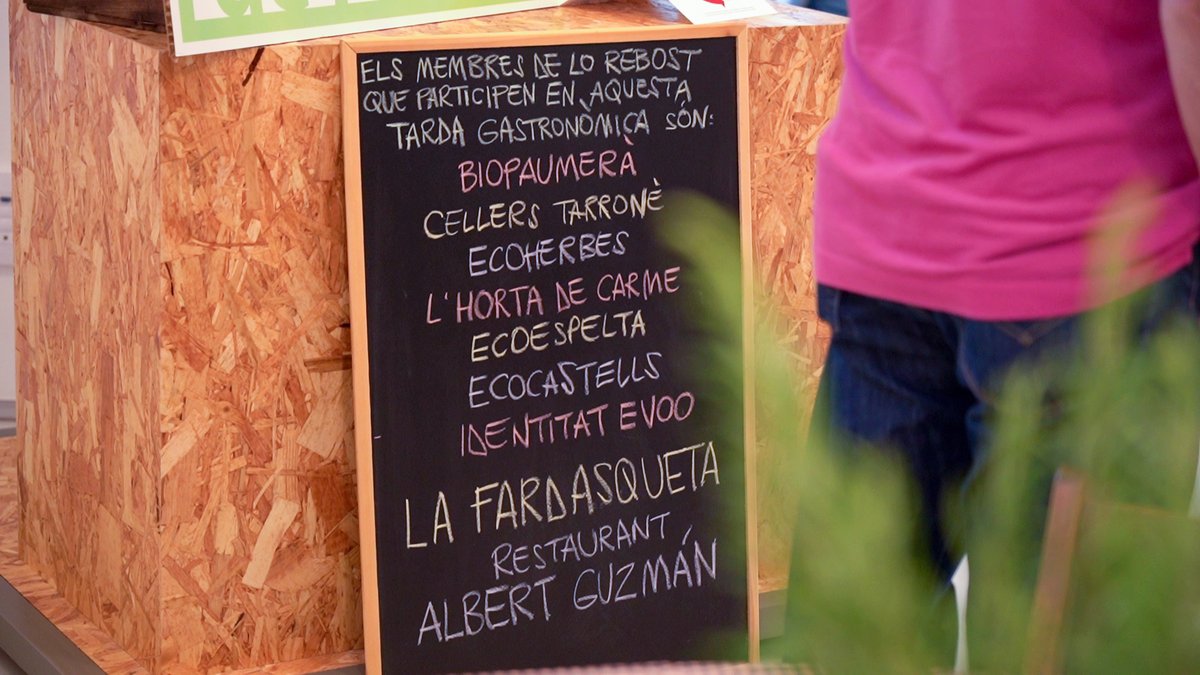 ELS MEMBRES DE LO REBOST
QUE PARTICIPEN EN AQUESTA
TARDA GASTRONÒMICA SÓN:
BIOPAUMERÀ
CELLERS TARRONÈ
ECOHERBES
L'HORTA DE CARME
ECOESPELTA
ECOCASTELLS
IDENTITAT EVOO
LA FARDASQUETA
RESTAURANT
ALBERT GUZMÁN